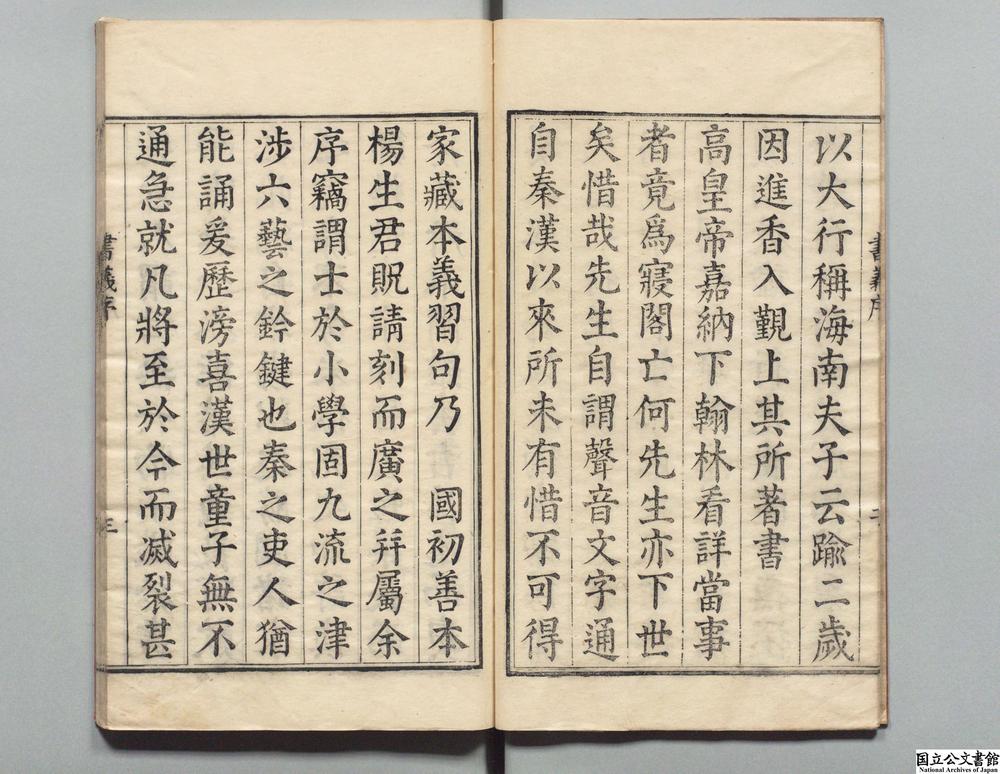 以大行稱海南夫子云踰二歲
因進香入覲上其所著書
高皇帝嘉納下翰林看詳當事
者竟爲寢閣亡何先生亦下世
矣惜哉先生自謂聲音文字通
自秦漢以來所未有惜不可得
家藏本義習句乃　國初善本
楊生君貺請刻而廣之幷屬余
序竊謂士於小學固九流之津
涉六藝之鈐鍵也秦之吏人猶
能誦爰歷滂喜漢世童子無不
通急就凡將至於今而滅裂甚
書義序
三
国立公文書館
National Archives of Japan